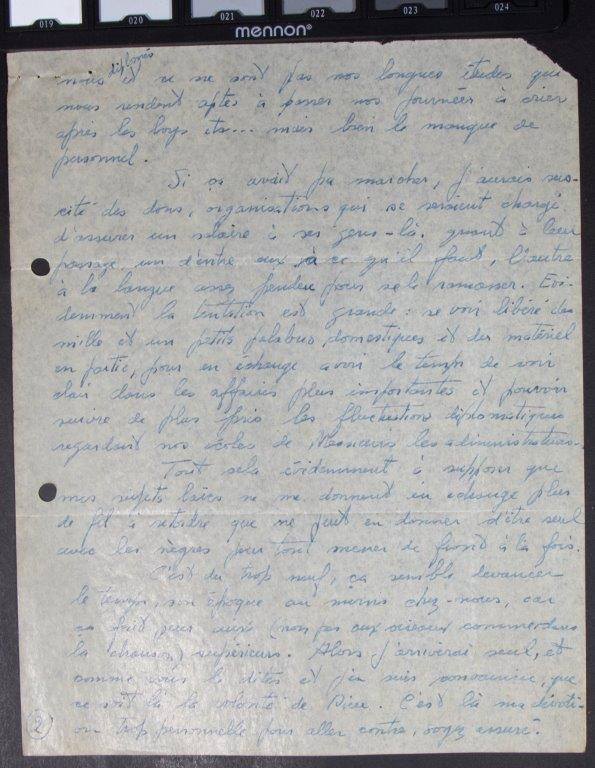 019 020 021 022 023 024
mennon®
diplmés
nous et ce ne sont pas nos longues études qui
nous rendent aptes à passer nos journées à crier
après les boys etc... mais bien le manque de
personnel.
Si ça avait pu marcher, j'aurais sus-
cité des dons, organisations qui se seraient chargé
d'assurer un salaire à ses gens-là. quant à leur
passage, un d'entre eux a ce qu'il faut, l'autre
à la langue assez pendue pour se le ramasser. Evi-
demment la tentation est grande: se voir libéré des
mille et un petits palabres, domestiques et du matériel
en partie, pour en échange avoir le temps de voir
clair dans les affaires plus importantes et pouvoir
suivre de plus près les fluctuations diplomatiques
regardant nos écoles de Messieurs les administrateurs.
Tout cela évidemment à supposer que
mes sujets laïcs ne me donnent en échange plus
de fil à retordre que ne peut en donner d'être seul
avec les nègres pour tout mener de front à la fois.
C'est du trop neuf, ça semble devancer
le temps, son époque au moins chez-nous, car
ça fait peur aux (non pas aux oiseaux commerdans
la chanson) supérieurs. Alors j'arriverai seul, et
comme vous le dites et j'en suis convaincu, que
ce soit là la volonté de Dieu. C'est là ma dévoti-
on trop personnelle pour aller contre, soyez assuré.
(2)